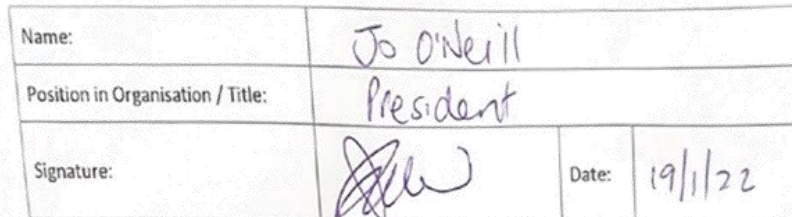 Name: Jo O'Neill
Position in Organisation / Title: President
Signature: Date: 19/1/22